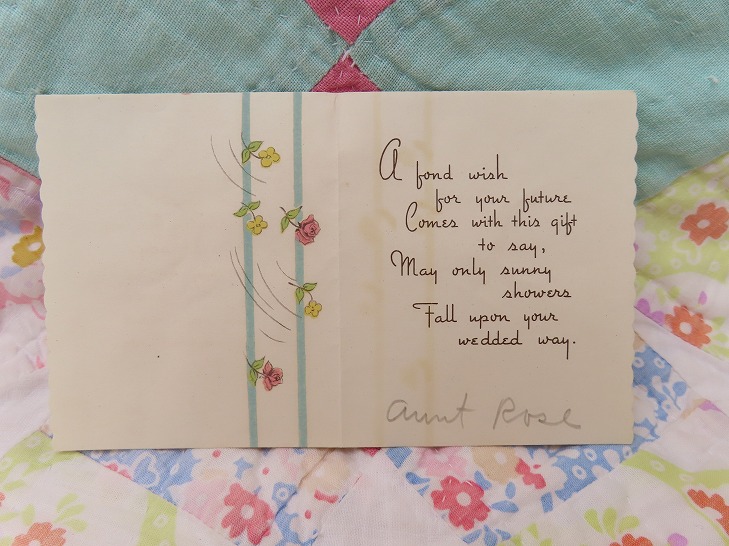 A fond wish
for your future
Comes with this gift
to say,
May only sunny
showers
Fall upon your
wedded way.
Aunt Rose